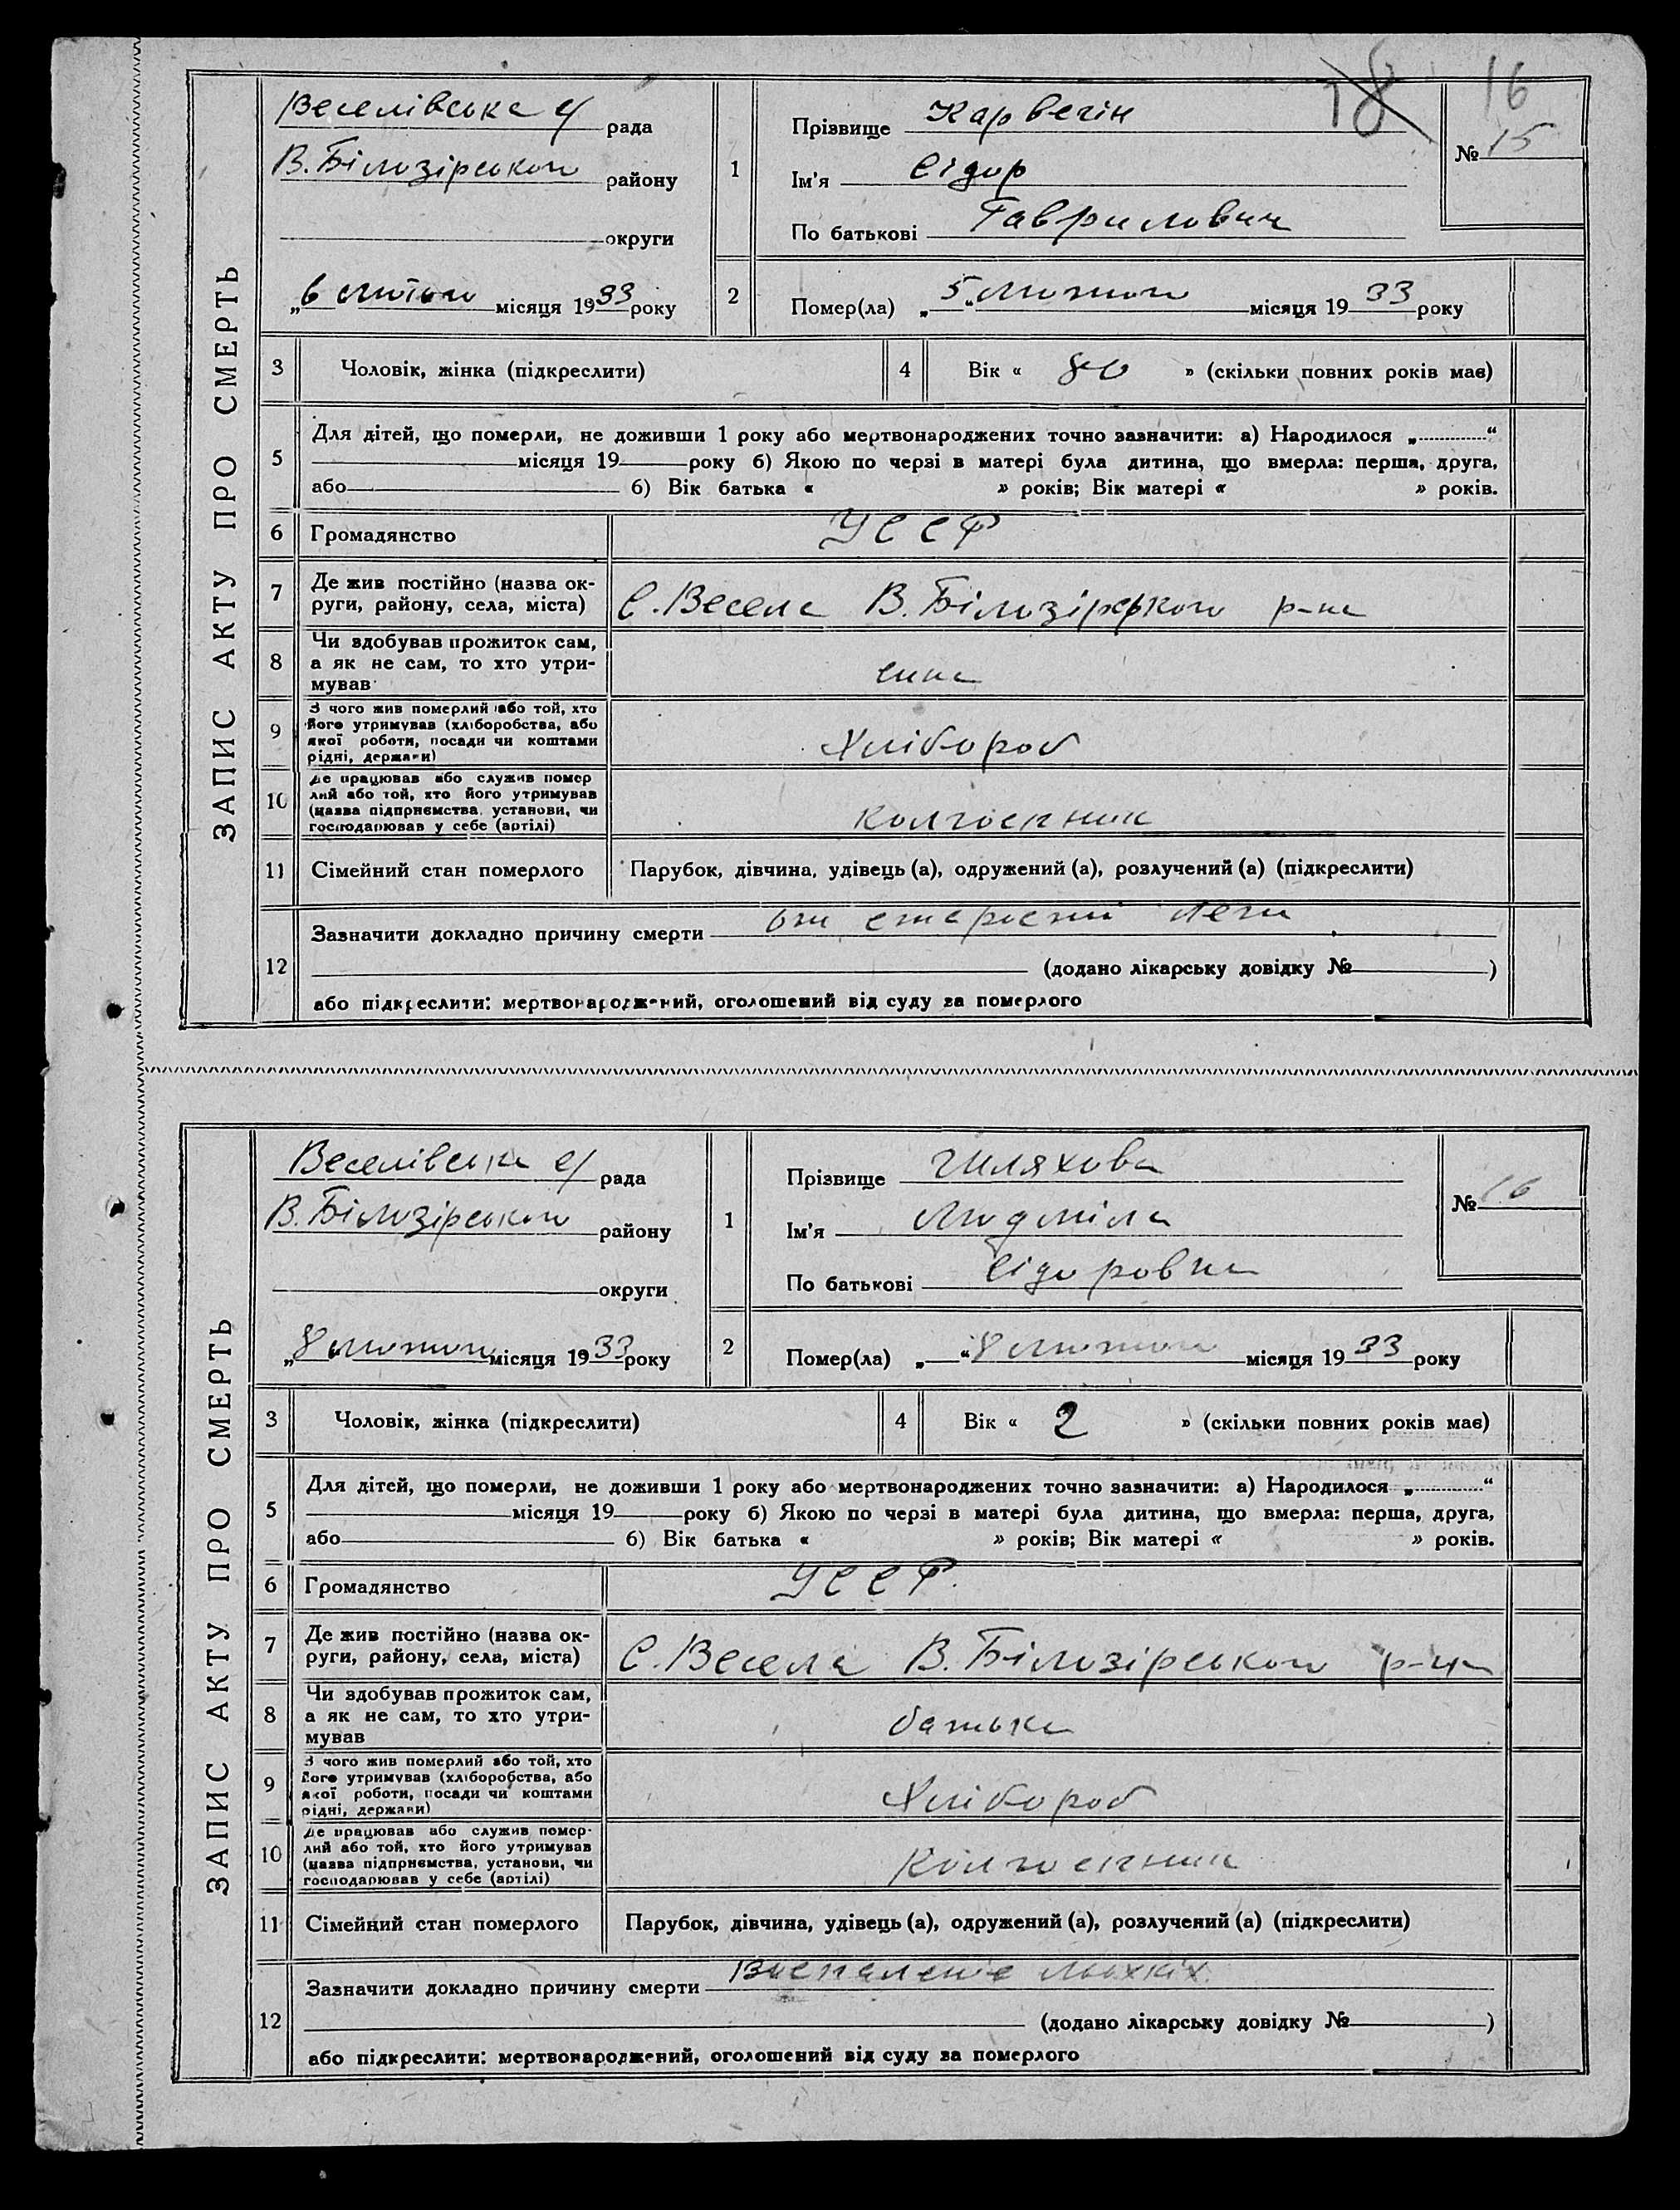 18 16
ЗАПИС АКТУ ПРО СМЕРТЬ
Веселівська с/ рада
В. Білозірського району
округи
„6 лютого місяця 1933 року
1
Прізвище Карвегін
Ім'я Сідор
По батькові Гаврилович
№ 15
2
Помер(ла) „5“ лютого місяця 1933 року
3 Чоловік, жінка (підкреслити)
4 Вік « 80 » (скільки повних років має)
5 Для дітей, що померли, не доживши 1 року або мертвонароджених точно зазначити: а) Народилося „ “
місяця 19 року б) Якою по черзі в матері була дитина, що вмерла: перша, друга,
або б) Вік батька « » років; Вік матері « » років.
6 Громадянство УССР
7 Де жив постійно (назва ок-
руги, району, села, міста) С. Весела В. Білозірського р-на
8 Чи здобував прожиток сам,
а як не сам, то хто утри-
мував сина
9 З чого жив померлий або той, хто
його утримував (хліборобства, або
якої роботи, посади чи коштами
рідні, держави) Хлібороб
10 Де працював або служив помер
лий або той, хто його утримував
(назва підприємства, установи, чи
господарював у себе (артілі) Колгоспник
11 Сімейний стан померлого Парубок, дівчина, удівець (а), одружений (а), розлучений (а) (підкреслити)
12 Зазначити докладно причину смерти от старости
(додано лікарську довідку № )
або підкреслити: мертвонароджений, оголошений від суду за померлого
ЗАПИС АКТУ ПРО СМЕРТЬ
Веселівська с/ рада
В. Білозірського району
округи
„8 лютого місяця 1933 року
1
Прізвище Шляхова
Ім'я Людміла
По батькові Сідоровна
№ 16
2
Помер(ла) „ “ 8 лютого місяця 1933 року
3 Чоловік, жінка (підкреслити)
4 Вік « 2 » (скільки повних років має)
5 Для дітей, що померли, не доживши 1 року або мертвонароджених точно зазначити: а) Народилося „ “
місяця 19 року б) Якою по черзі в матері була дитина, що вмерла: перша, друга,
або б) Вік батька « » років; Вік матері « » років.
6 Громадянство УССР.
7 Де жив постійно (назва ок-
руги, району, села, міста) С. Весела В. Білозірського р-на
8 Чи здобував прожиток сам,
а як не сам, то хто утри-
мував батька
9 З чого жив померлий або той, хто
його утримував (хліборобства, або
якої роботи, посади чи коштами
рідні, держави) Хлібороб
10 Де працював або служив помер-
лий або той, хто його утримував
(назва підприємства, установи, чи
господарював у себе (артілі) Колгоспник
11 Сімейний стан померлого Парубок, дівчина, удівець (а), одружений (а), розлучений (а) (підкреслити)
12 Зазначити докладно причину смерти Воспаленіе льохкіх.
(додано лікарську довідку № )
або підкреслити: мертвонароджений, оголошений від суду за померлого